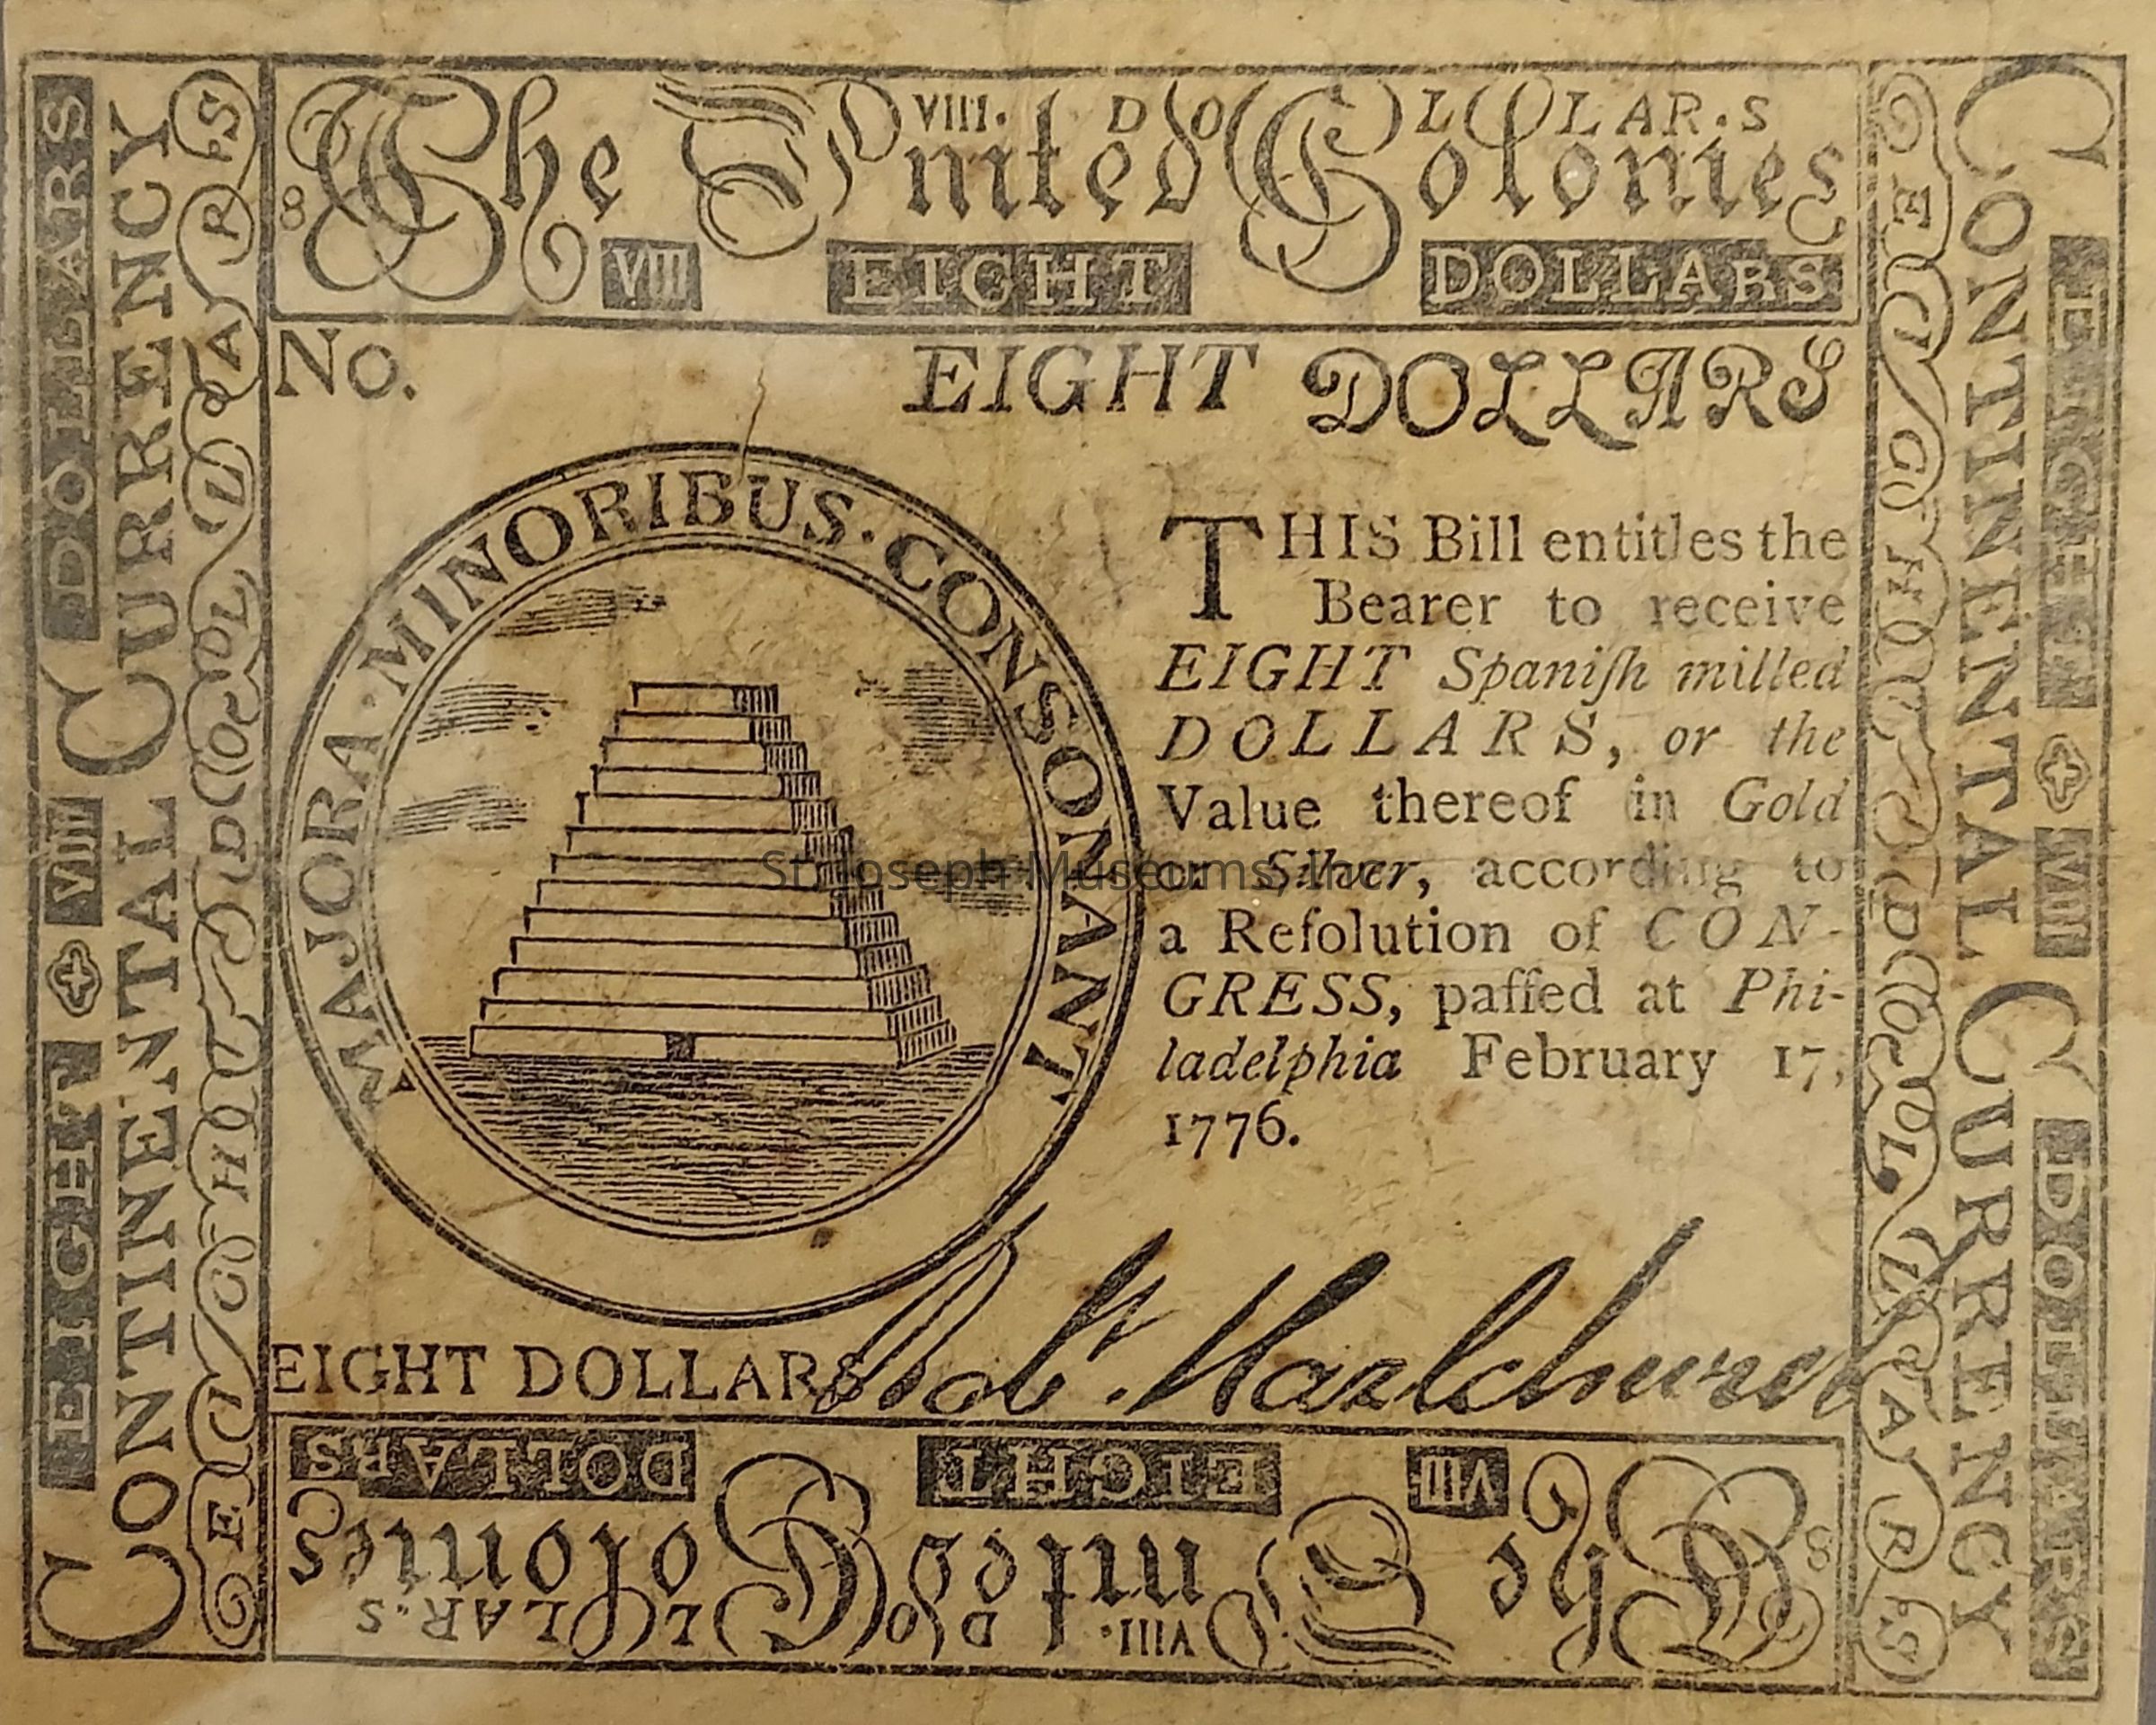 VIII. DOLLAR.S
The United Colonies
8
VIII EIGHT DOLLARS
No. EIGHT DOLLARS
MAJORA · MINORIBUS · CONSONANT
THIS Bill entitles the
Bearer to receive
EIGHT Spaniſh milled
DOLLARS, or the
Value thereof in Gold
or Silver, according to
a Reſolution of CON-
GRESS, paſſed at Phi-
ladelphia February 17,
1776.
St. Joseph Museums, Inc.
EIGHT DOLLARS
Robt.
EIGHT VIII DOLLARS
CONTINENTAL CURRENCY
EIGHT DOLLARS
EIGHT VIII DOLLARS
CONTINENTAL CURRENCY
EIGHT DOLLARS
VIII EIGHT DOLLARS
8
The United Colonies
VIII. DOLLAR.S